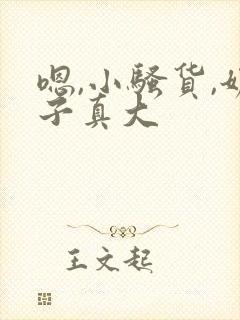 嗯,小骚货,
子真大
王文起